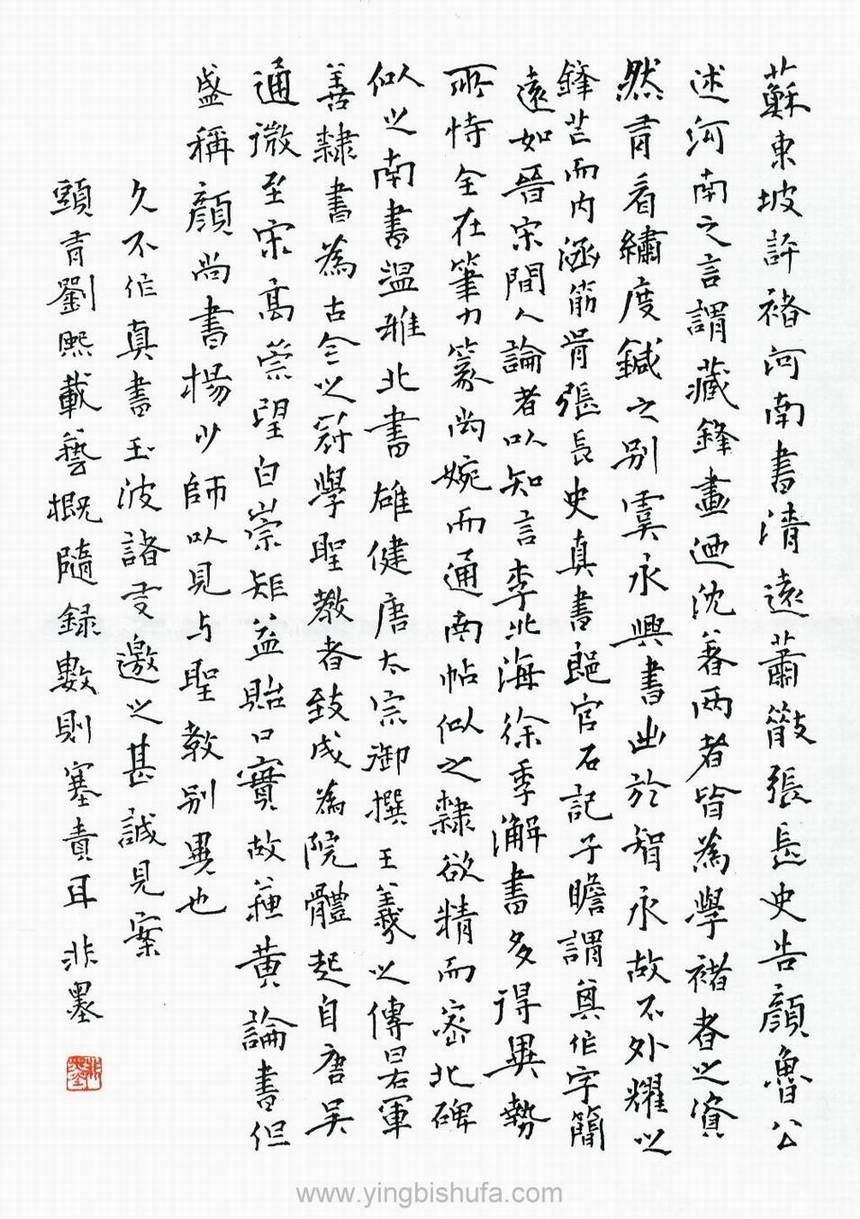 蘇東坡評褚河南書清遠蕭散張長史告顏魯公
述河南之言謂藏鋒畫迺沈著兩者皆為學褚者之資
然有看繡度鍼之别虞永興書出於智永故不外耀以
鋒芒而内涵筋骨張長史真書郎官石記子瞻謂其作字簡
遠如晉宋間人論者以知言李北海徐季海書多得異勢
所恃全在筆力篆尚婉而通南帖似之隸欲精而密北碑
似之南書温雅北書雄健唐太宗御撰王羲之傳曰右軍
善隸書為古今之冠學聖教者致成為院體起自唐吴
通微至宋高崇望白崇矩益貽口實故蘇黄論書但
盛稱顔尚書楊少師以見与聖教别異也
久不作真書玉波諸友邀之甚誠見案
頭有劉熙載藝概隨録數則塞責耳非墨
www.yingbishufa.com